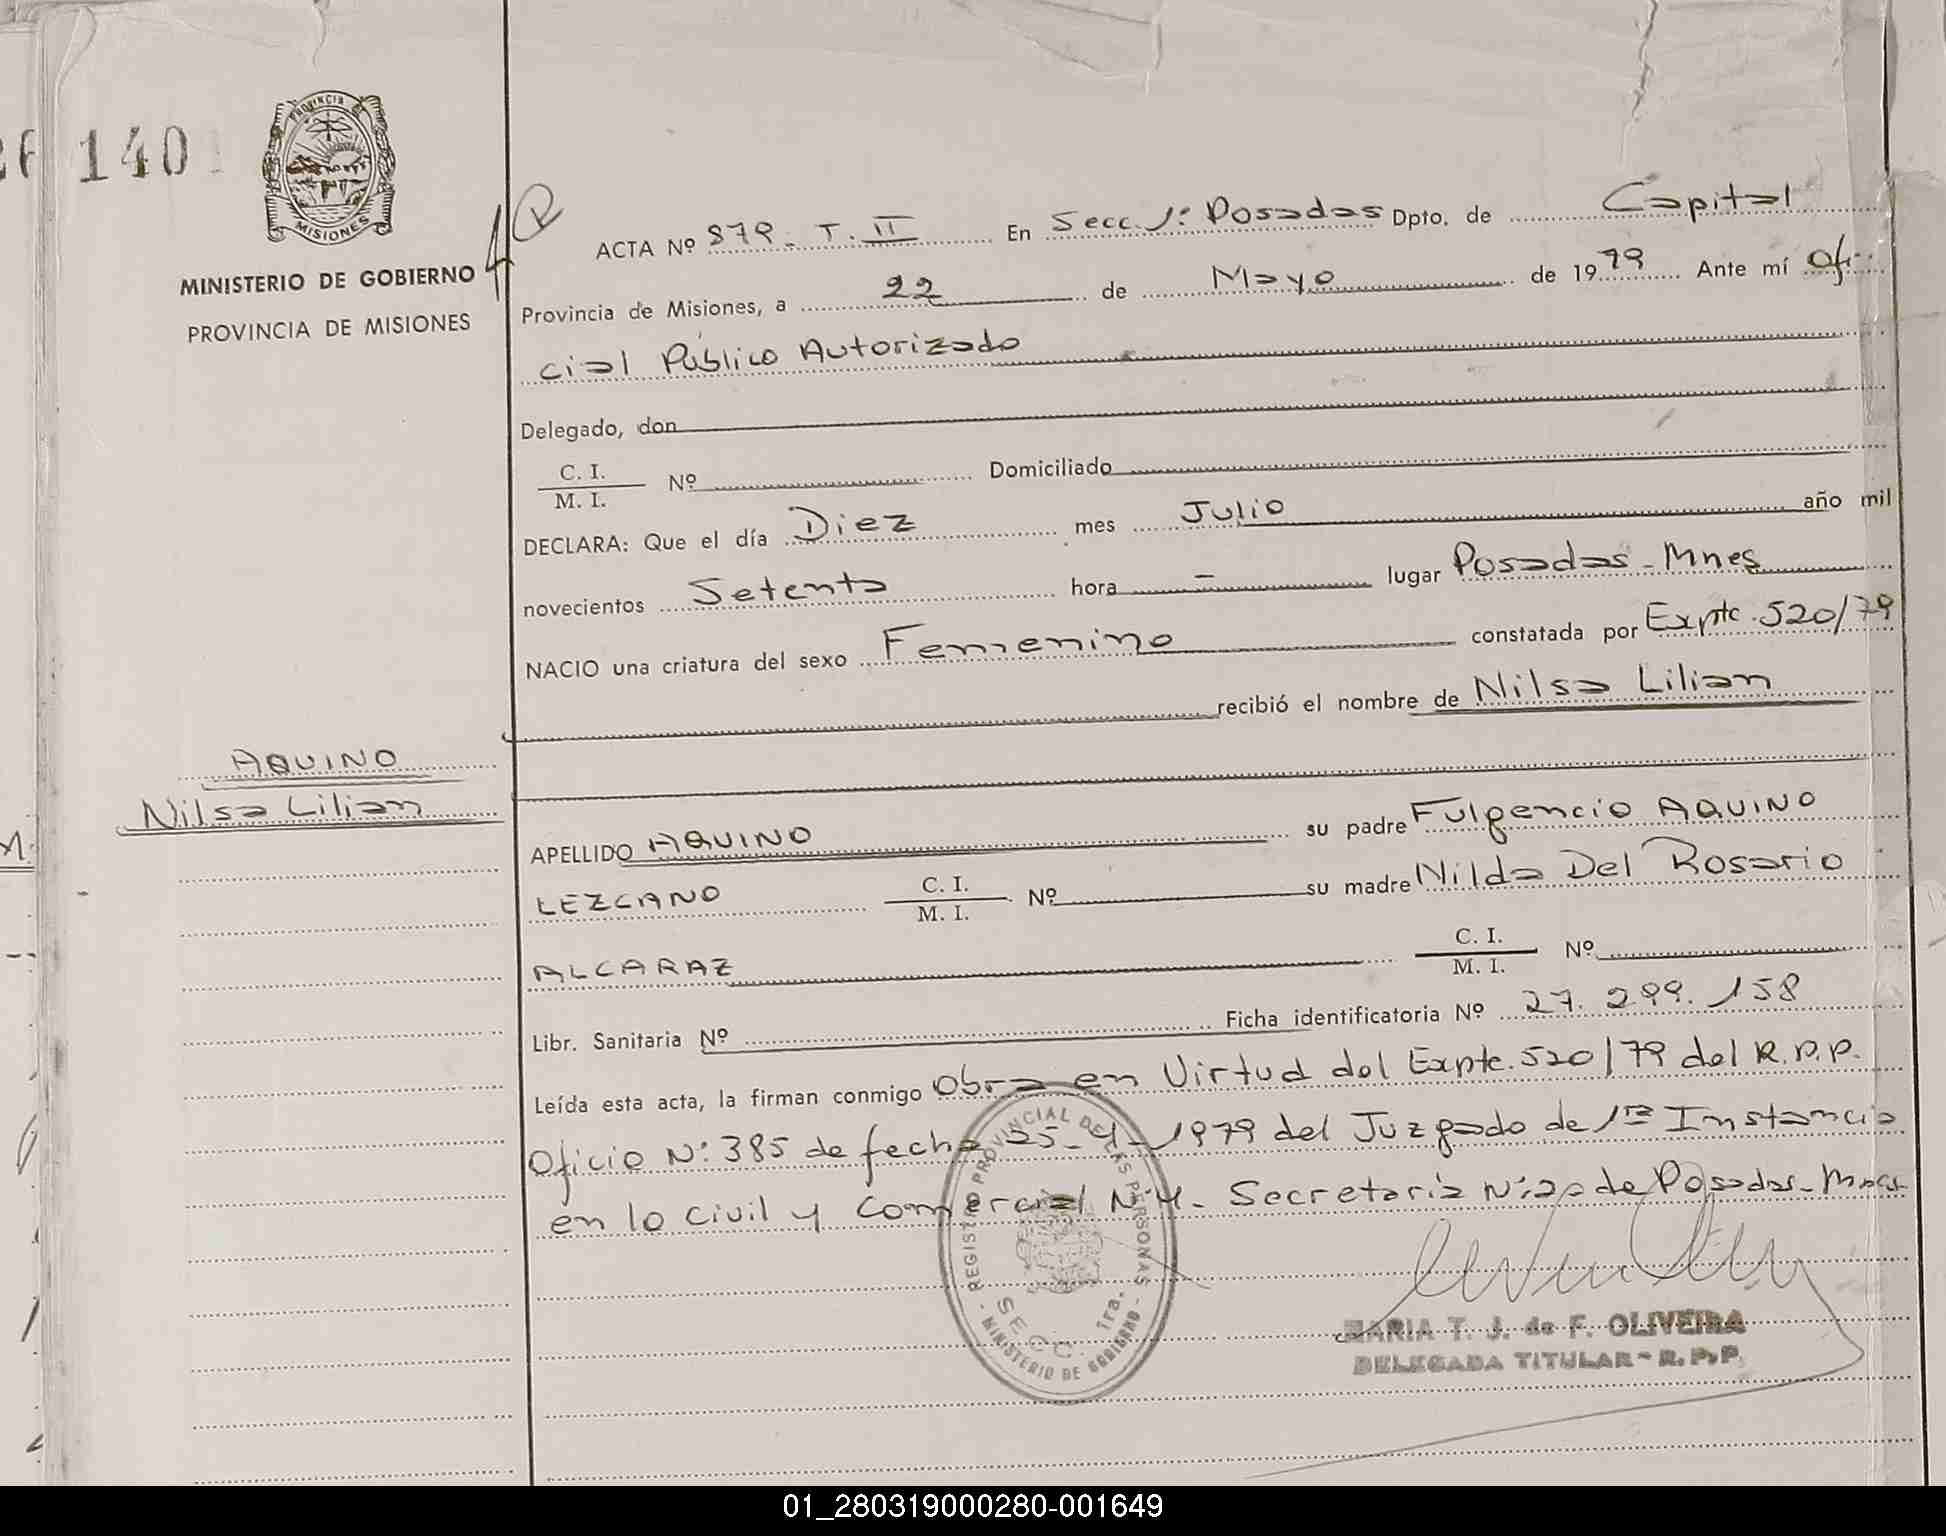 140
PROVINCIA DE
MISIONES
MINISTERIO DE GOBIERNO
PROVINCIA DE MISIONES
ACTA Nº 879 - T. II En Secc. 1º Posadas Dpto. de Capital
Provincia de Misiones, a 22 de Mayo de 1979 Ante mí Ofi-
cial Público Autorizado
Delegado, don
C. I.
M. I. Nº Domiciliado
DECLARA: Que el día Diez mes Julio año mil
novecientos Setenta hora - lugar Posadas - Mnes
NACIO una criatura del sexo Femenino constatada por Expte. 520/79
recibió el nombre de Nilsa Lilian
AQUINO
Nilsa Lilian
APELLIDO AQUINO su padre Fulgencio AQUINO
LEZCANO C. I. M. I. Nº su madre Nilda Del Rosario
ALCARAZ C. I. M. I. Nº
Libr. Sanitaria Nº Ficha identificatoria Nº 27.299.158
Leída esta acta, la firman conmigo Obra en Virtud del Expte. 520/79 del R.P.P.
Oficio Nº 385 de fecha 25-4-1979 del Juzgado de 1ra Instancia
en lo Civil y Comercial Nº 4 - Secretaria Nº de Posadas - Mnes
REGISTRO PROVINCIAL DE LAS PERSONAS
SECC. 1ra.
MINISTERIO DE GOBIERNO
MARIA T. J. de F. OLIVEIRA
DELEGADA TITULAR - R.P.P.
01_280319000280-001649